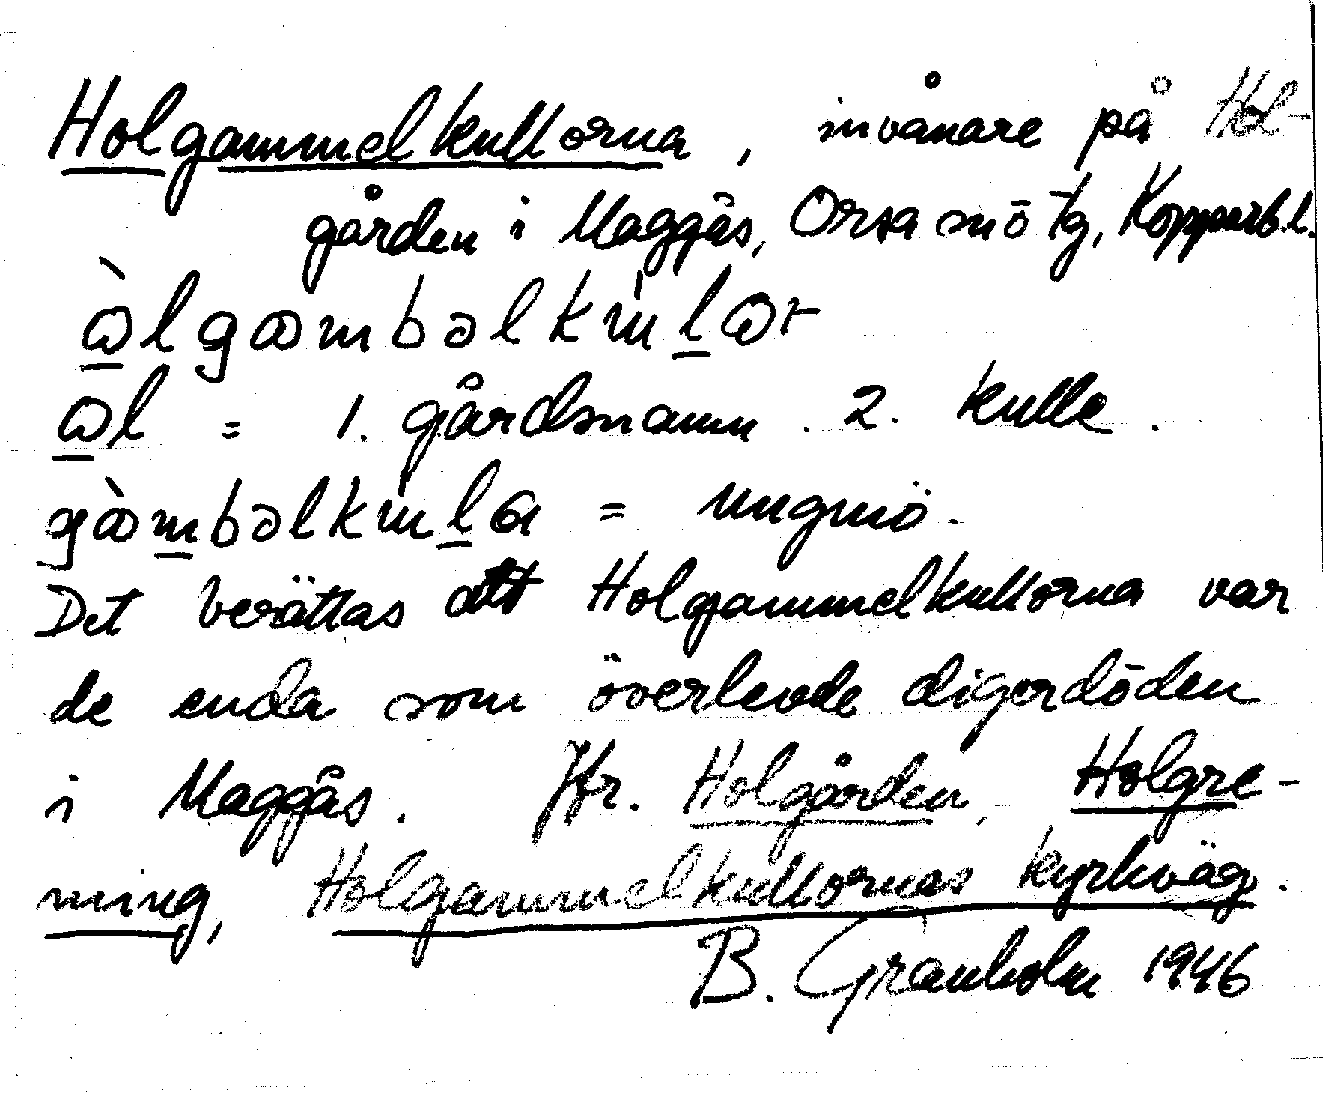 Holgammelkullorna, invånare på Hol-
gården i Maggås, Orsa sn ö tg, Kopparb.l.
= 1. gårdsnamn. 2. kulle.
= ungmö.
Det berättas att Holgammelkullorna var
de enda som överlevde digerdöden
i Maggås. Jfr. Holgården, Holgre-
ning, Holgammelkullornas kyrkväg.
B. Granholm 1946